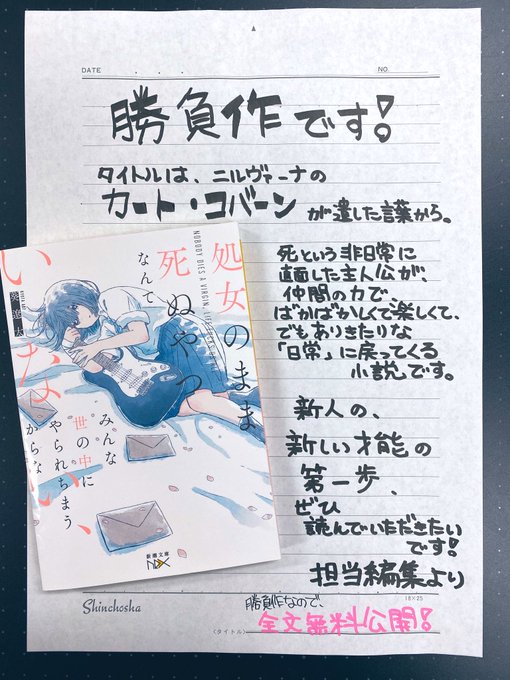 DATE
NO.
勝負作です!
タイトルは、ニルヴァーナの
カート・コバーンが遺した言葉から。
死という非日常に
直面した主人公が、
仲間の力で、
ばかばかしくて楽しくて、
でもありきたりな
「日常」に戻ってくる
小説です。
新人の、
新しい才能の
第一歩、
ぜひ
読んでいただきたい
です!
担当編集より
処女のまま
死ぬやつ
なんて
いない、
みんな
世の中に
やられちまう
からな
NOBODY DIES A VIRGIN, LIFE
新潮文庫
NEX
Shinchosha
18×25
(タイトル)
勝負作なので、
全文無料公開!